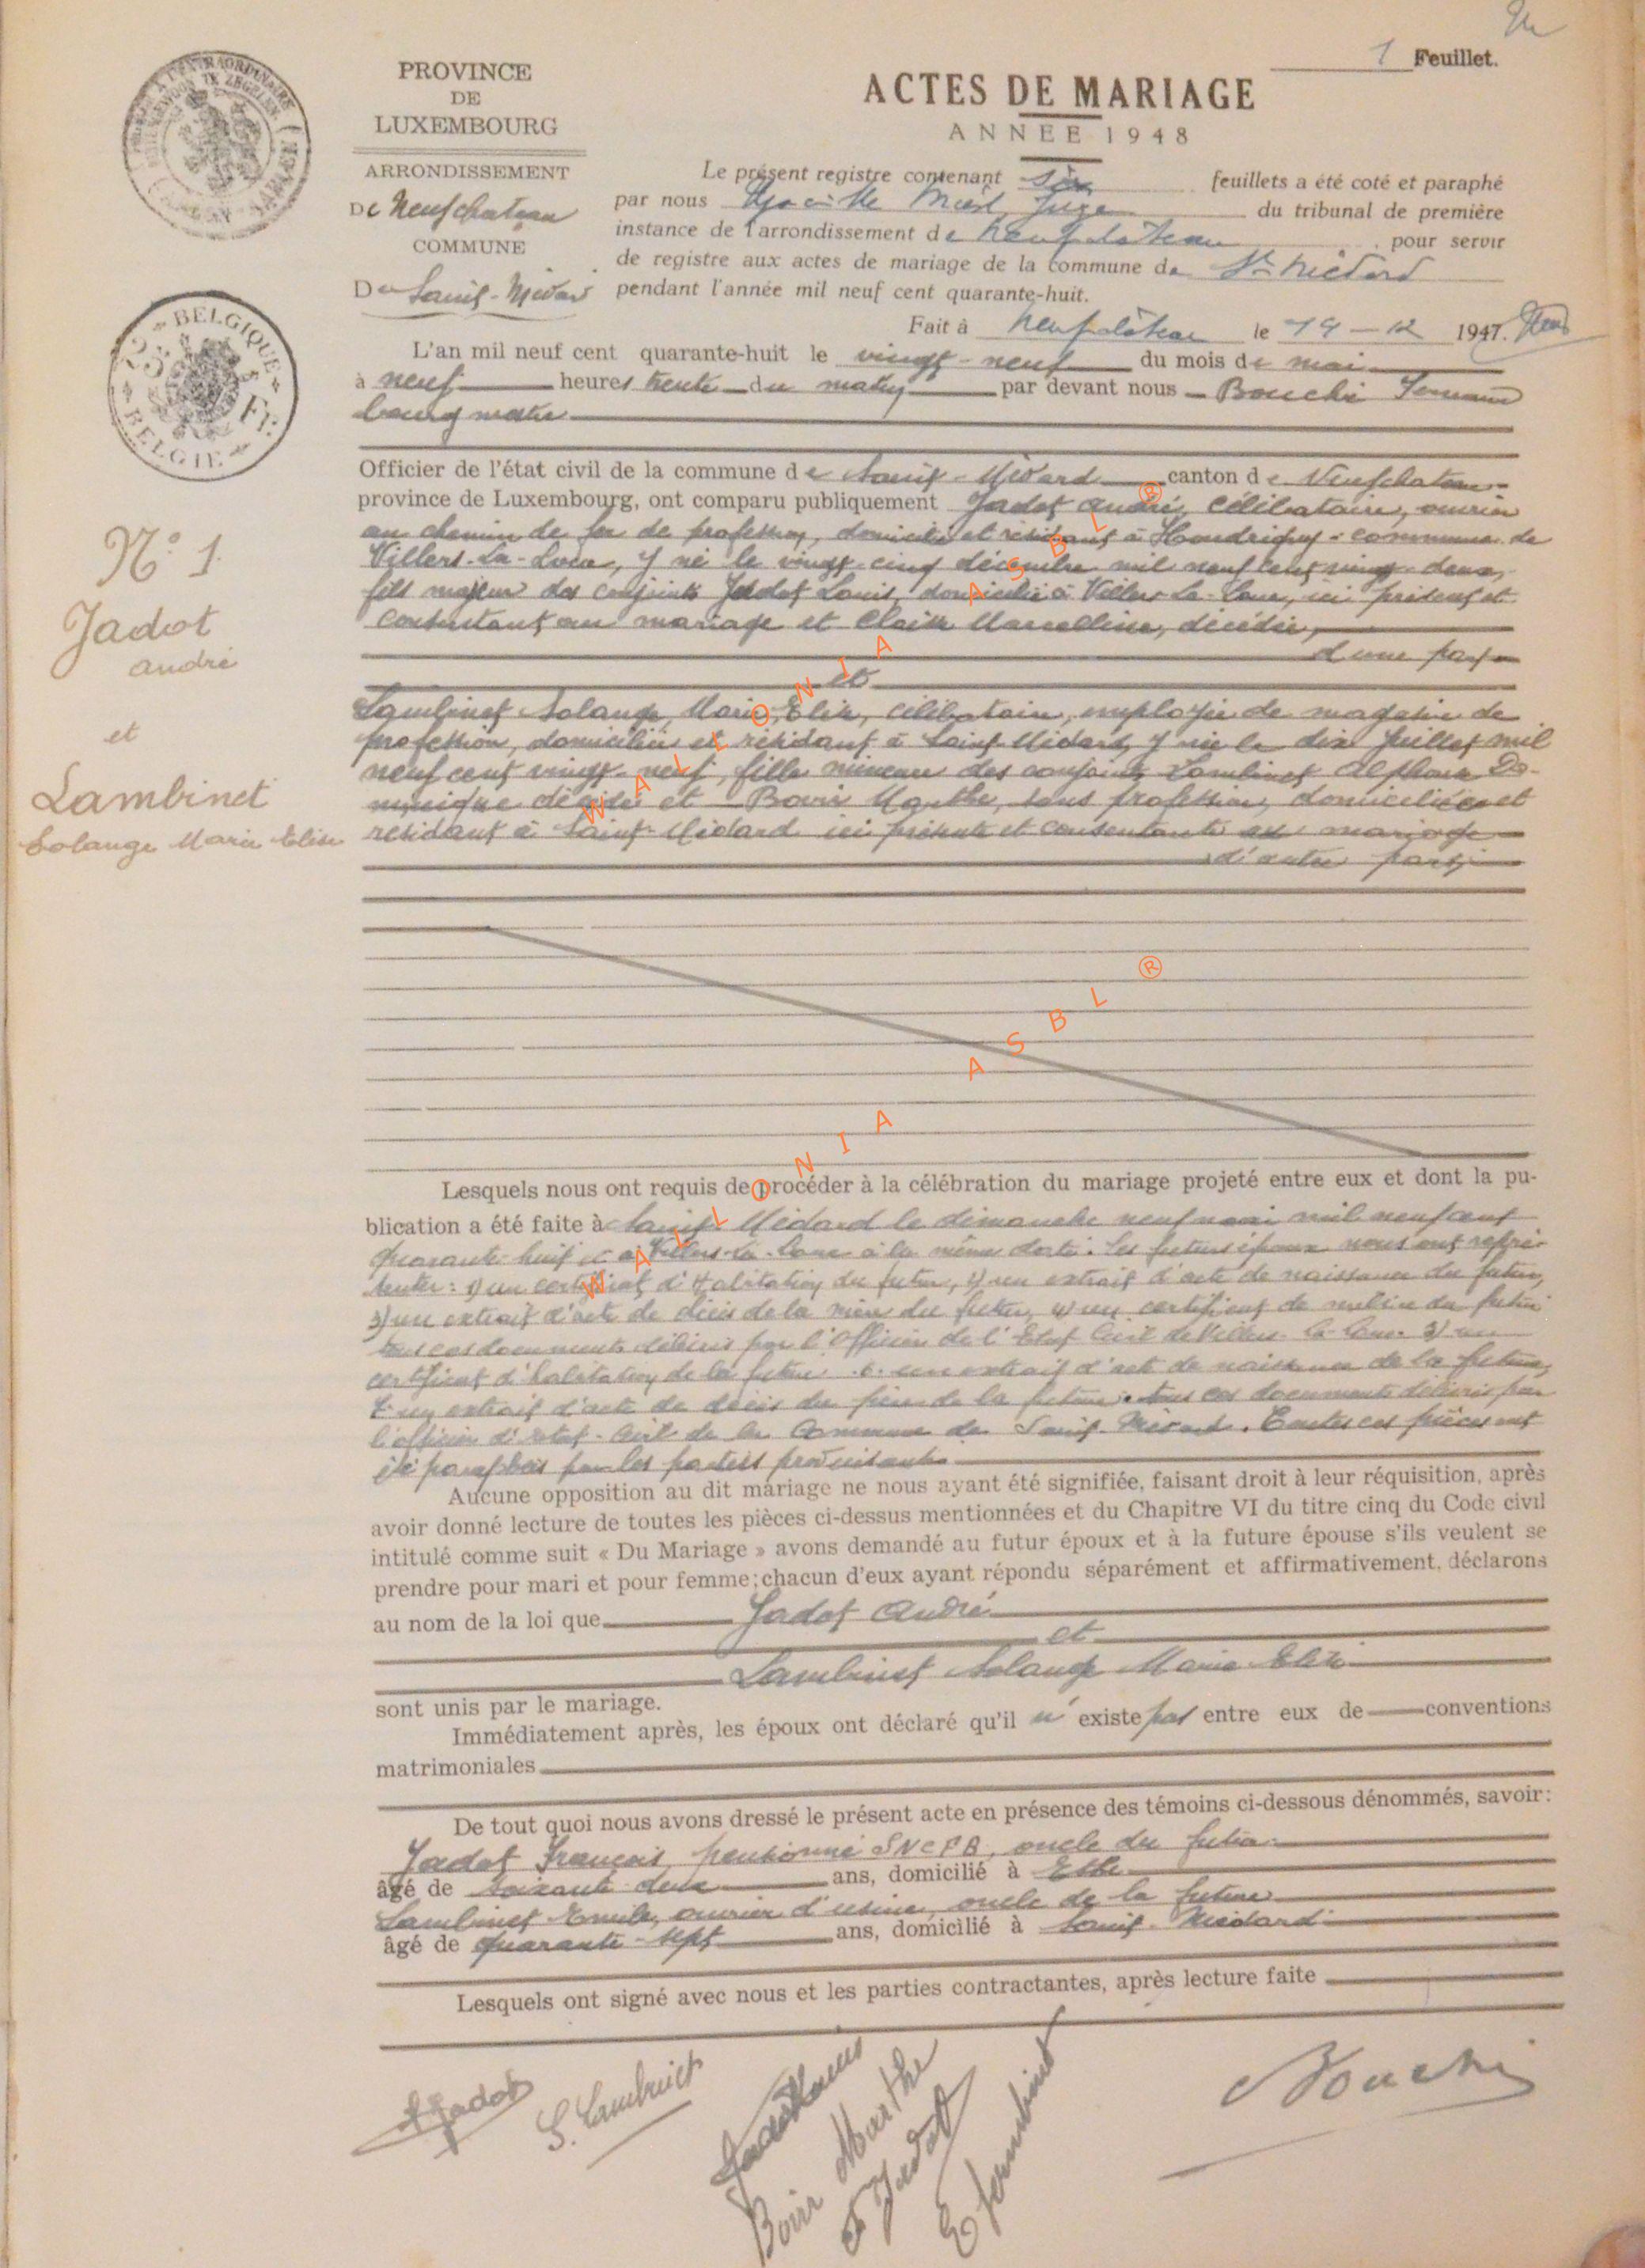 1 Feuillet.
PROVINCE
DE
LUXEMBOURG
ACTES DE MARIAGE
ANNEE 1948
ARRONDISSEMENT
De Neufchateau
COMMUNE
De Saint-Médard
Le présent registre contenant six feuillets a été coté et paraphé
par nous Juge du tribunal de première
instance de l'arrondissement de Neufchâteau pour servir
de registre aux actes de mariage de la commune de St Médard
pendant l'année mil neuf cent quarante-huit.
Fait à Neufchâteau le 19-12 1947.
BELGIQUE
25 Fr.
BELGIE
L'an mil neuf cent quarante-huit le vingt-neuf du mois de mai
à neuf heures trente du matin par devant nous Bouché Fernand
bourgmestre
Officier de l'état civil de la commune de Saint-Médard canton de Neufchateau
province de Luxembourg, ont comparu publiquement Jadot André, célibataire, ouvrier
au chemin de fer de profession, domicilié et résidant à Houdrigny-commune de
Villers-la-Loue, y né le vingt-cinq décembre mil neuf cent vingt-deux,
fils majeur des conjoints Jadot Louis, domicilié à Villers-la-Loue, ici présent et
consentant au mariage et Marcelline, décédée,
d'une part
et
Lambinet Solange, Marie, Elise, célibataire, employée de magasin de
profession, domiciliée et résidant à Saint-Médard, y née le dix juillet mil
neuf cent vingt-neuf, fille mineure des conjoints Lambinet Alphonse Do-
minique décédé et Marthe, sans profession, domiciliée et
résidant à Saint-Médard ici présente et consentante au mariage
d'autre part,
N° 1
Jadot
André
et
Lambinet
Solange Marie Elise
Lesquels nous ont requis de procéder à la célébration du mariage projeté entre eux et dont la pu-
blication a été faite à Saint-Médard le dimanche neuf mai mil neuf cent
quarante-huit et à Villers-la-Loue à la même date. Les futurs époux nous ont repré-
senter: 1) un certificat d'habitation du futur, 2) un extrait d'acte de naissance du futur,
3) un extrait d'acte de décès de la mère du futur, 4) un certificat de milice du futur
tous ces documents délivrés par l'Officier de l'Etat Civil de Villers-la-Loue. 5) un
certificat d'habitation de la future .6. un extrait d'acte de naissance de la future,
7 un extrait d'acte de décès du père de la future. tous ces documents délivrés par
l'officier d'état-civil de la Commune de Saint-Médard. Toutes ces pièces ont
été paraphées par les parties produisantes
Aucune opposition au dit mariage ne nous ayant été signifiée, faisant droit à leur réquisition, après
avoir donné lecture de toutes les pièces ci-dessus mentionnées et du Chapitre VI du titre cinq du Code civil
intitulé comme suit « Du Mariage » avons demandé au futur époux et à la future épouse s'ils veulent se
prendre pour mari et pour femme; chacun d'eux ayant répondu séparément et affirmativement, déclarons
au nom de la loi que Jadot André
et
Lambinet Solange Marie Elise
sont unis par le mariage.
Immédiatement après, les époux ont déclaré qu'il n'existe pas entre eux de conventions
matrimoniales
De tout quoi nous avons dressé le présent acte en présence des témoins ci-dessous dénommés, savoir:
Jadot François, pensionné SNCFB, oncle du futur
âgé de soixante-deux ans, domicilié à Ethe
Lambinet Emile, ouvrier d'usine, oncle de la future
âgé de quarante-sept ans, domicilié à Saint-Médard
Lesquels ont signé avec nous et les parties contractantes, après lecture faite
A Jadot
S. Lambinet
Jadot Louis
Marthe
F Jadot
E Lambinet
Bouché
WALLONIA ASBL ®
WALLONIA ASBL ®